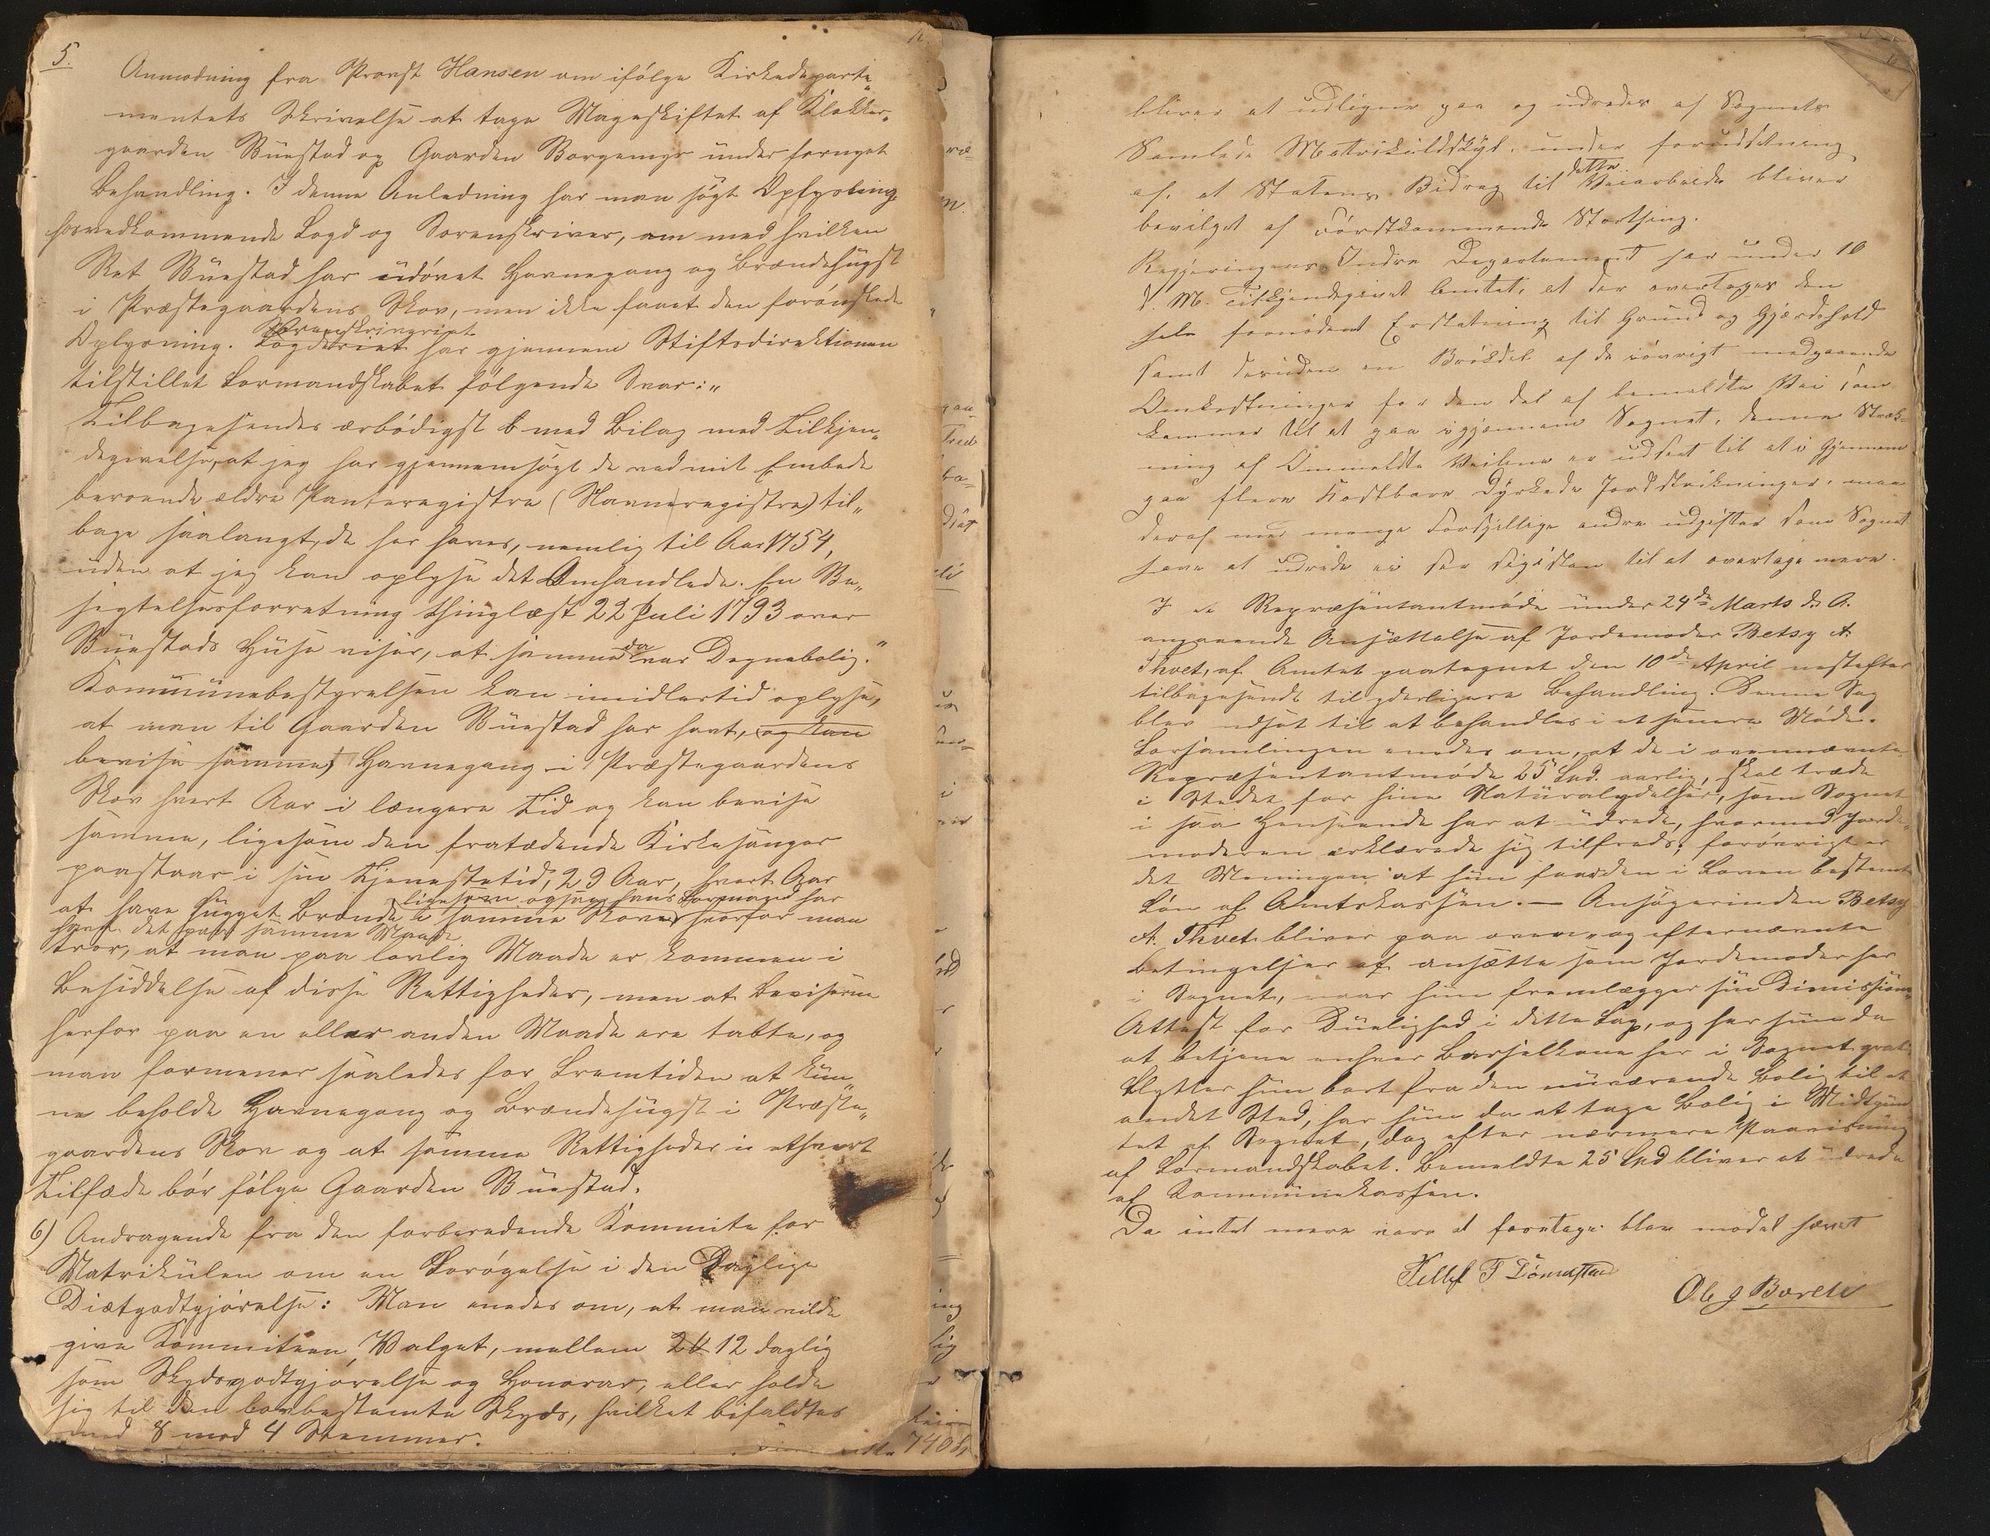 5.
Anmodning fra Provst Hansen om ifölge Kirkedeparte„
mentets Skrivelse at tage Mageskiftet af Klokker„
gaarden Buestad og Gaarden Borgemyr under fornyet
Behandling. I denne Anledning har man sögt Oplysning
hos vedkommende Fogd og Sorenskriver, om med hvilken
Ret Buestad har udövet Havnegang og Brændehugst
i Præstegaardens Skov, men ikke faaet den forönskede
Oplysning. Fogderiet Sorenskriveriet har gjennem Stiftsdirektionen
tilstillet Formandskabet fölgende Svar:„
Tilbagesendes ærbödigst med Bilag med Tilkjen„
degivelse, at jeg har gjennemsögt de ved mit Embede
beroende ældre Panteregistre (Navneregistre) til„
bage saalangt, de her haves, nemlig til Aar 1754,
uden at jeg kan oplyse det Omhandlede. En Be„
sigtelsesforretning thinglæst 22 Juli 1793 over
Buestads Huse viser, at samme da var Degnebolig."
Kommunebestyrelsen kan imidlertid oplyse,
at man til Gaarden Buestad har havt, og kan
bevise samme, Havnegang i Præstegaardens
Skov hvert Aar i længere Tid og kan bevise
samme, ligesom den fratrædende Kirkesanger
paastaar i sin Tjenestetid, 29 Aar, hvert Aar
at have hugget Brænde i samme Skov, ligesom ogsaa hans Formand har
havt det paa samme Maade hvorfor man
tror, at man paa lovlig Maade er kommen i
Besiddelse af disse Rettigheder, men at Beviserne
herfor paa en eller anden Maade ere tabte, og
man formener saaledes for Fremtiden at kun„
ne beholde Havnegang og Brændehugst i Præste„
gaardens Skov og at samme Rettigheder i ethvert
Tilfæde bör fölge Gaarden Buestad.
6) Andragende fra den forberedende Kommite for
Matrikülen om en Forögelse i den daglige
Diætgodtgjörelse: Man enedes om, at man vilde
give Kommiteen Valget, mellem 12 daglig
som Skydsgodtgjörelse og Honorar, eller holde
sig til den lovbestemte Skyds, hvilket bifaldtes
med 8 mod 4 Stemmer.
bliver at udligne paa og udredes af Sognets
Samlede Matrikulskyl. under forudsætning
af, at Statens Bidrag til dette Veiarbeide bliver
bevilget af Förstkommende Storthing.
Regjeringens Indre Departement har under 10
d. M. Tilkjendegivet Amtet, at der overtages den
hele fornödent Erstatning til Grund og Gjærdehold
samt desuden en Brökdel af de iövrigt medgaaende
Omkostninger for den del af bemeldte Vei som
kommer til at gaa igjennem Sognet, denne Stræk-
ning af Ommeldte Veilinie er udseet til at i Gjennem
gaa flere Kostbare Dyrkede Jordstrækninger, man
deraf med mange Forskjellige andre udgifter som Sognet
have at udrede er der til at overtage mere.
I et Repræsentantmöde under 24de Marts d. A.
angaaende Ansættelse af Jordemoder Betsy A.
Thvet, af Amtet paategnet den 10de April nestefter
tilbagesendt til yderligere Behandling. Denne Sag
blev udsat til at behandles i et senere Möde.
Forsamlingen enedes om, at de i ovennævnte
Repræsentantmöde 25 Spd. aarlig, skal træde
i Stedet for hine Naturalydelser, som Sognet
i saa Henseende har at udrede, hvormed Jorde„
moderen erklærede sig tilfreds; forövrigt er
det Meningen at hun faar den i Loven bestemte
Lön af Amtskassen. — Ansögerinden Betsy
A. Thvet bliver paa oven- og efternævnte
Betingelser at ansætte som Jordemoder her
i Sognet, naar hun fremlægger sin Dimissions„
Attest for Duelighed i dette Fag, og har hun da
at betjene enhver Barselkone her i Sognet grat
Flytter hun bort fra den nuværende Bolig til et
andet Sted, har hun da at tage Bolig i Midtpun
tet af Sognet, dog efter nærmere Paavisning
af Formandskabet. Bemeldte 25 Spd bliver at udrede
af Kommunekassen.
Da intet mere vare at foretage blev mödet hævet
Tellef T Lömsten
Ole J Bareli